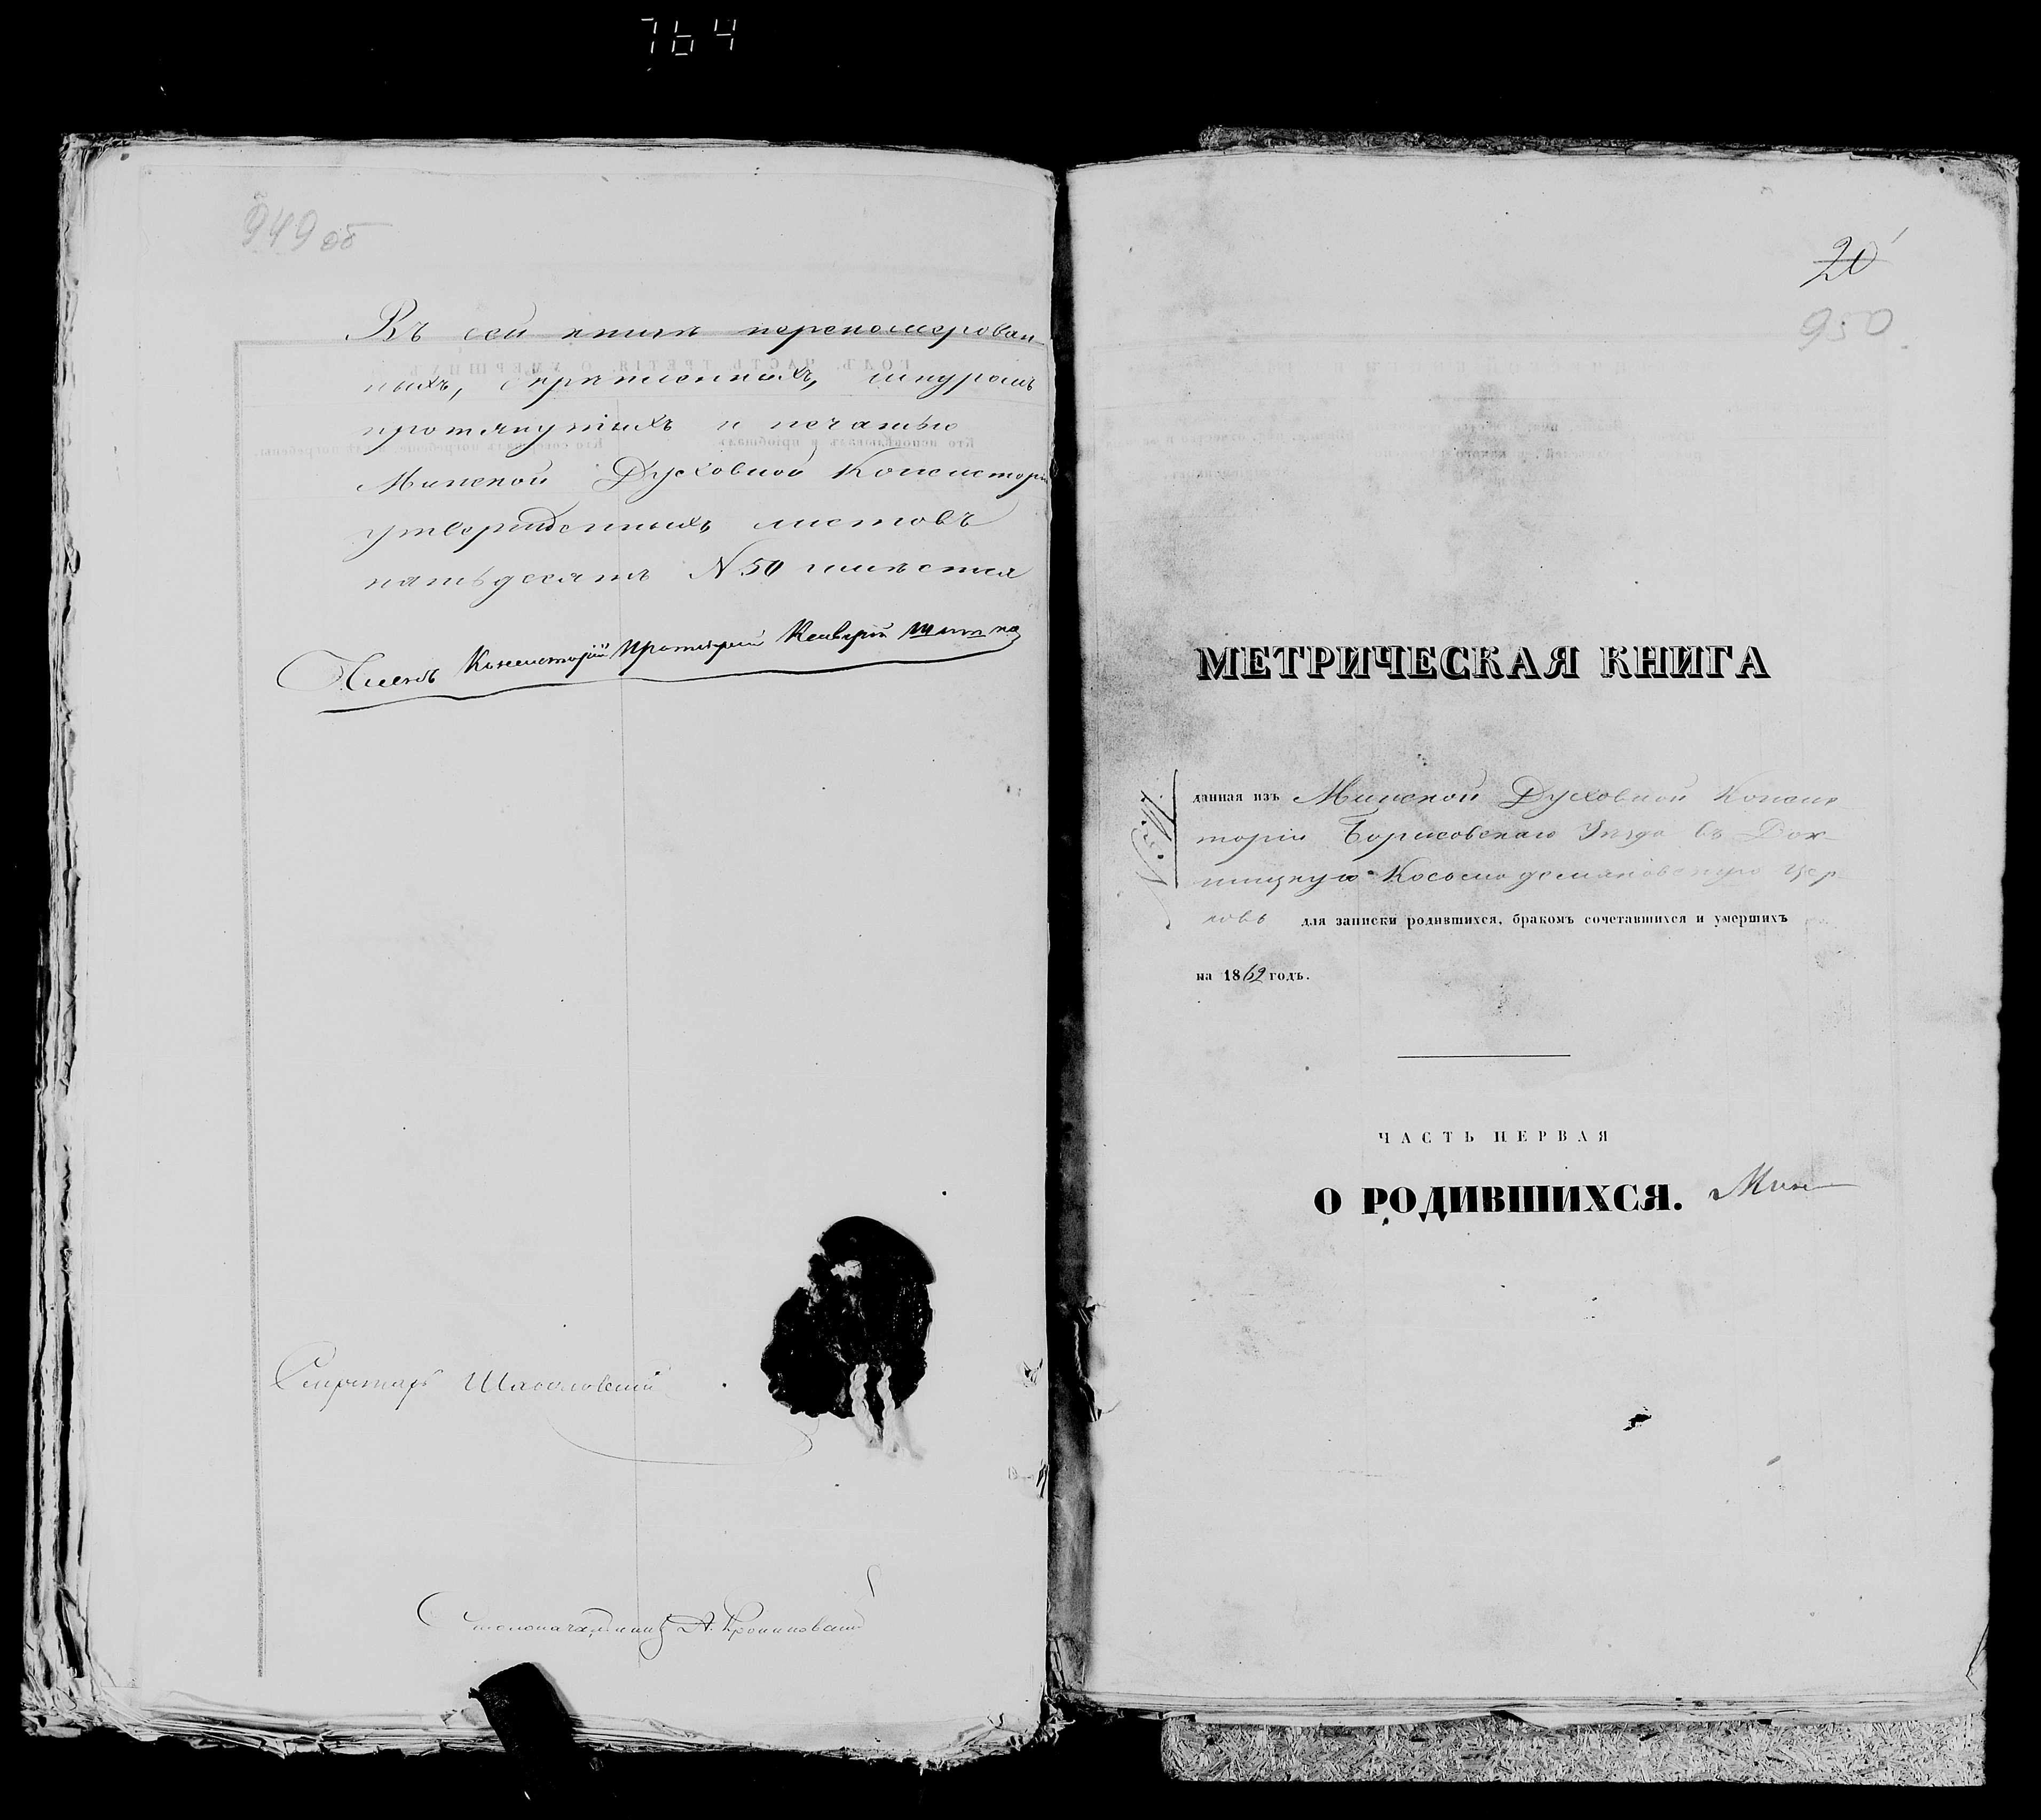 764
949 об
Въ сей книгѣ перенумерован-
ныхъ, скрѣпленныхъ, шнуромъ
протянутыхъ и печатью
Минской Духовной Консисторіи
утвержденныхъ листовъ
пятьдесятъ N 50 имѣется
Членъ Консисторіи Протоіерей
Секретарь
Столоначальникъ А.
20
950
МЕТРИЧЕСКАЯ КНИГА
данная изъ Минской Духовной Консис-
торіи Борисовскаго Уѣзда въ Док-
шицкую Косьмодеміановскую Цер-
ковь для записки родившихся, бракомъ сочетавшихся и умершихъ
на 1862 годъ.
ЧАСТЬ ПЕРВАЯ
О РОДИВШИХСЯ.